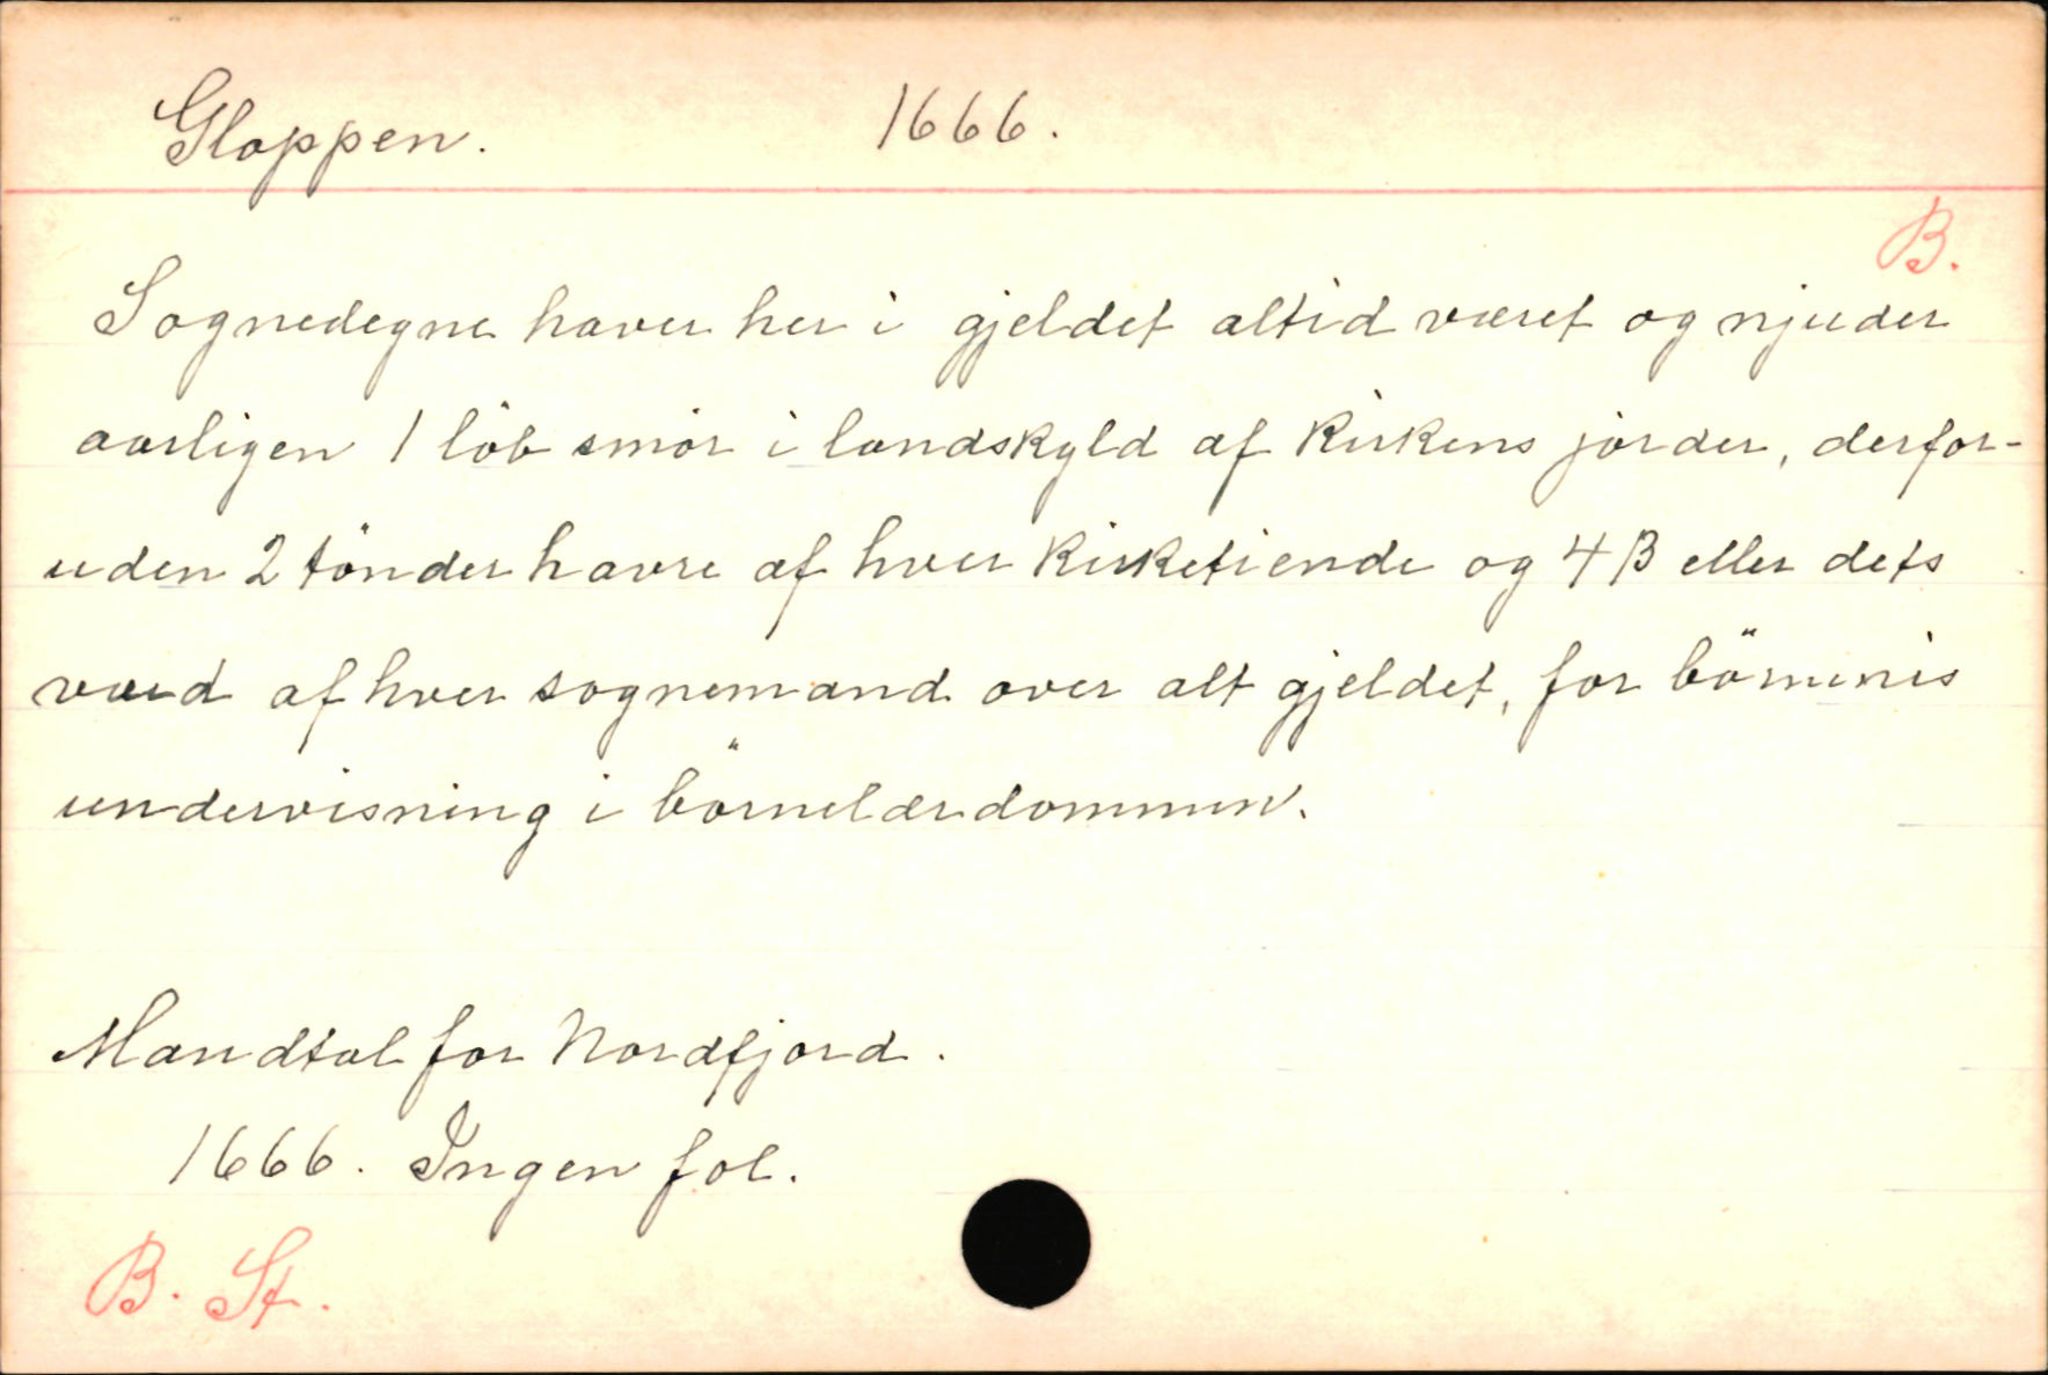 Gloppen. 1666.
B.
Sognedegne haver her i gjeldet altid været og njuder
aarligen 1 löb smör i landskyld af Kirkens jorder, derfor-
uden 2 tönder havre af hver Kirketiende og 4 β eller dets
værd af hver sognemand over alt gjeldet, for börnenis
undervisning i börnelærdommen.
Mandtal for Nordfjord.
1666. Ingen fol.
B. St.